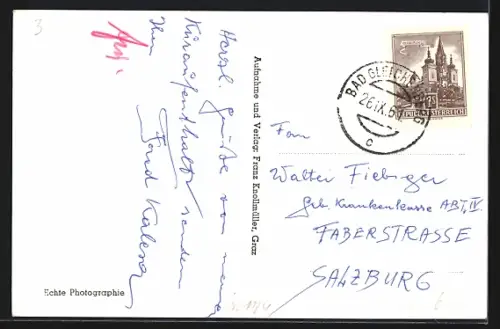 3
Herzl. Grüße von meinem
Kuraufenthalte senden
Ihnen
Aufnahme und Verlag: Franz Knollmüller, Graz
Echte Photographie
BAD GLEICHENBERG
26.IX.
c
REPUBLIK ÖSTERREICH
Walter Fiebiger
Geb. Krankenkasse ABT. IV
FABERSTRASSE
SALZBURG